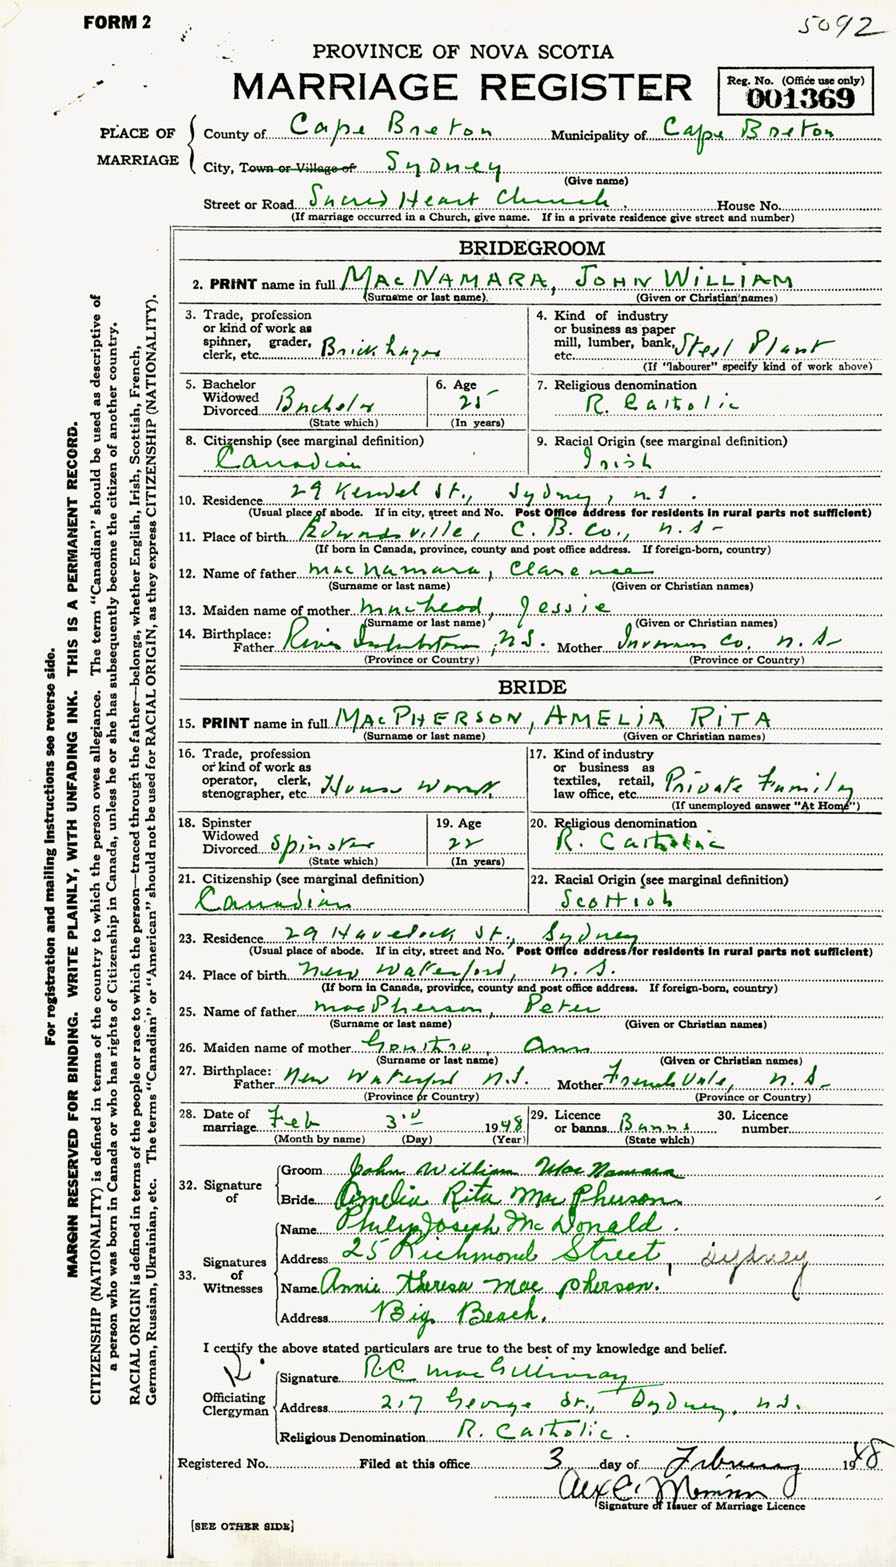 FORM 2
5092
PROVINCE OF NOVA SCOTIA
MARRIAGE REGISTER
Reg. No. (Office use only)
001369
PLACE OF MARRIAGE
County of Cape Breton Municipality of Cape Breton
City, Town or Village of Sydney
(Give name)
Street or Road Sacred Heart Church. House No.
(If marriage occurred in a Church, give name. If in a private residence give street and number)
BRIDEGROOM
2. PRINT name in full MACNAMARA, JOHN WILLIAM
(Surname or last name) (Given or Christian names)
3. Trade, profession or kind of work as spinner, grader, clerk, etc. Brick layer
4. Kind of industry or business as paper mill, lumber, bank, etc. Steel Plant
(If "labourer" specify kind of work above)
5. Bachelor Widowed Divorced Bachelor
(State which)
6. Age 25
(In years)
7. Religious denomination
R. Catholic
8. Citizenship (see marginal definition)
Canadian
9. Racial Origin (see marginal definition)
Irish
10. Residence 29 St., Sydney, N.S.
(Usual place of abode. If in city, street and No. Post Office address for residents in rural parts not sufficient)
11. Place of birth Edwardsville, C. B. Co., N.S-
(If born in Canada, province, county and post office address. If foreign-born, country)
12. Name of father MacNamara, Clarence
(Surname or last name) (Given or Christian names)
13. Maiden name of mother , Jessie
(Surname or last name) (Given or Christian names)
14. Birthplace: Father River , N.S. Mother Co. N.S-
(Province or Country) (Province or Country)
BRIDE
15. PRINT name in full MACPHERSON, AMELIA RITA
(Surname or last name) (Given or Christian names)
16. Trade, profession or kind of work as operator, clerk, stenographer, etc. House work
17. Kind of industry or business as textiles, retail, law office, etc. Private Family
(If unemployed answer "At Home")
18. Spinster Widowed Divorced Spinster
(State which)
19. Age 22
(In years)
20. Religious denomination
R. Catholic
21. Citizenship (see marginal definition)
Canadian
22. Racial Origin (see marginal definition)
Scottish
23. Residence 29 Havelock St., Sydney
(Usual place of abode. If in city, street and No. Post Office address for residents in rural parts not sufficient)
24. Place of birth New Waterford, N.S.
(If born in Canada, province, county and post office address. If foreign-born, country)
25. Name of father MacPherson, Peter
(Surname or last name) (Given or Christian names)
26. Maiden name of mother , Ann
(Surname or last name) (Given or Christian names)
27. Birthplace: Father New Waterford N.S. Mother French Vale, N.S-
(Province or Country) (Province or Country)
28. Date of marriage Feb 3rd 1948
(Month by name) (Day) (Year)
29. Licence or banns Banns
(State which)
30. Licence number
32. Signature of
Groom John William MacNamara
Bride Amelia Rita MacPherson
33. Signatures of Witnesses
Name Philip Joseph McDonald.
Address 25 Richmond Street, Sydney
Name Annie Theresa MacPherson.
Address Big Beach.
I certify the above stated particulars are true to the best of my knowledge and belief.
Officiating Clergyman
Signature R.C. MacGillivray
Address 217 George St., Sydney, N.S.
Religious Denomination R. Catholic.
Registered No. Filed at this office 3 day of February 1948
Signature of Issuer of Marriage Licence
[SEE OTHER SIDE]
For registration and mailing instructions see reverse side.
MARGIN RESERVED FOR BINDING. WRITE PLAINLY, WITH UNFADING INK. THIS IS A PERMANENT RECORD.
CITIZENSHIP (NATIONALITY) is defined in terms of the country to which the person owes allegiance. The term "Canadian" should be used as descriptive of
a person who was born in Canada or who has rights of Citizenship in Canada, unless he or she has subsequently become the citizen of another country.
RACIAL ORIGIN is defined in terms of the people or race to which the person—traced through the father—belongs, whether English, Irish, Scottish, French,
German, Russian, Ukrainian, etc. The terms "Canadian" or "American" should not be used for RACIAL ORIGIN, as they express CITIZENSHIP (NATIONALITY).